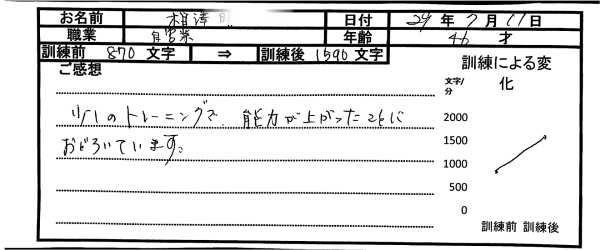 お名前 相澤 日付 29年7月11日
職業 自営業 年齢 46才
訓練前 870 文字 ⇒ 訓練後 1590 文字
ご感想
少しのトレーニングで、能力が上がったことに
おどろいています。
訓練による変化
文字/分
2000
1500
1000
500
0
訓練前 訓練後